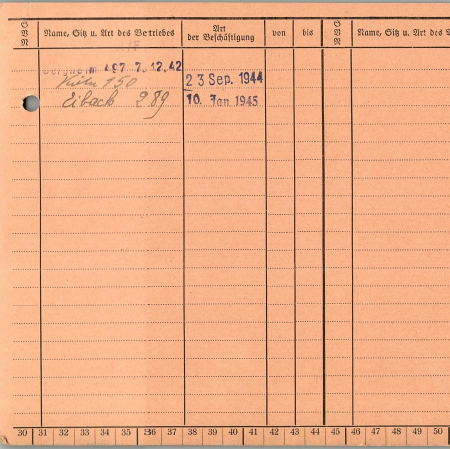 GBN Name, Sitz u. Art des Betriebes Art der Beschäftigung von bis GBN Name, Sitz u. Art des
497 7. 12. 42
Köln 150 23 Sep. 1944
Eibach 289 10. Jan 1945
30 31 32 33 34 35 36 37 38 39 40 41 42 43 44 45 46 47 48 49 50